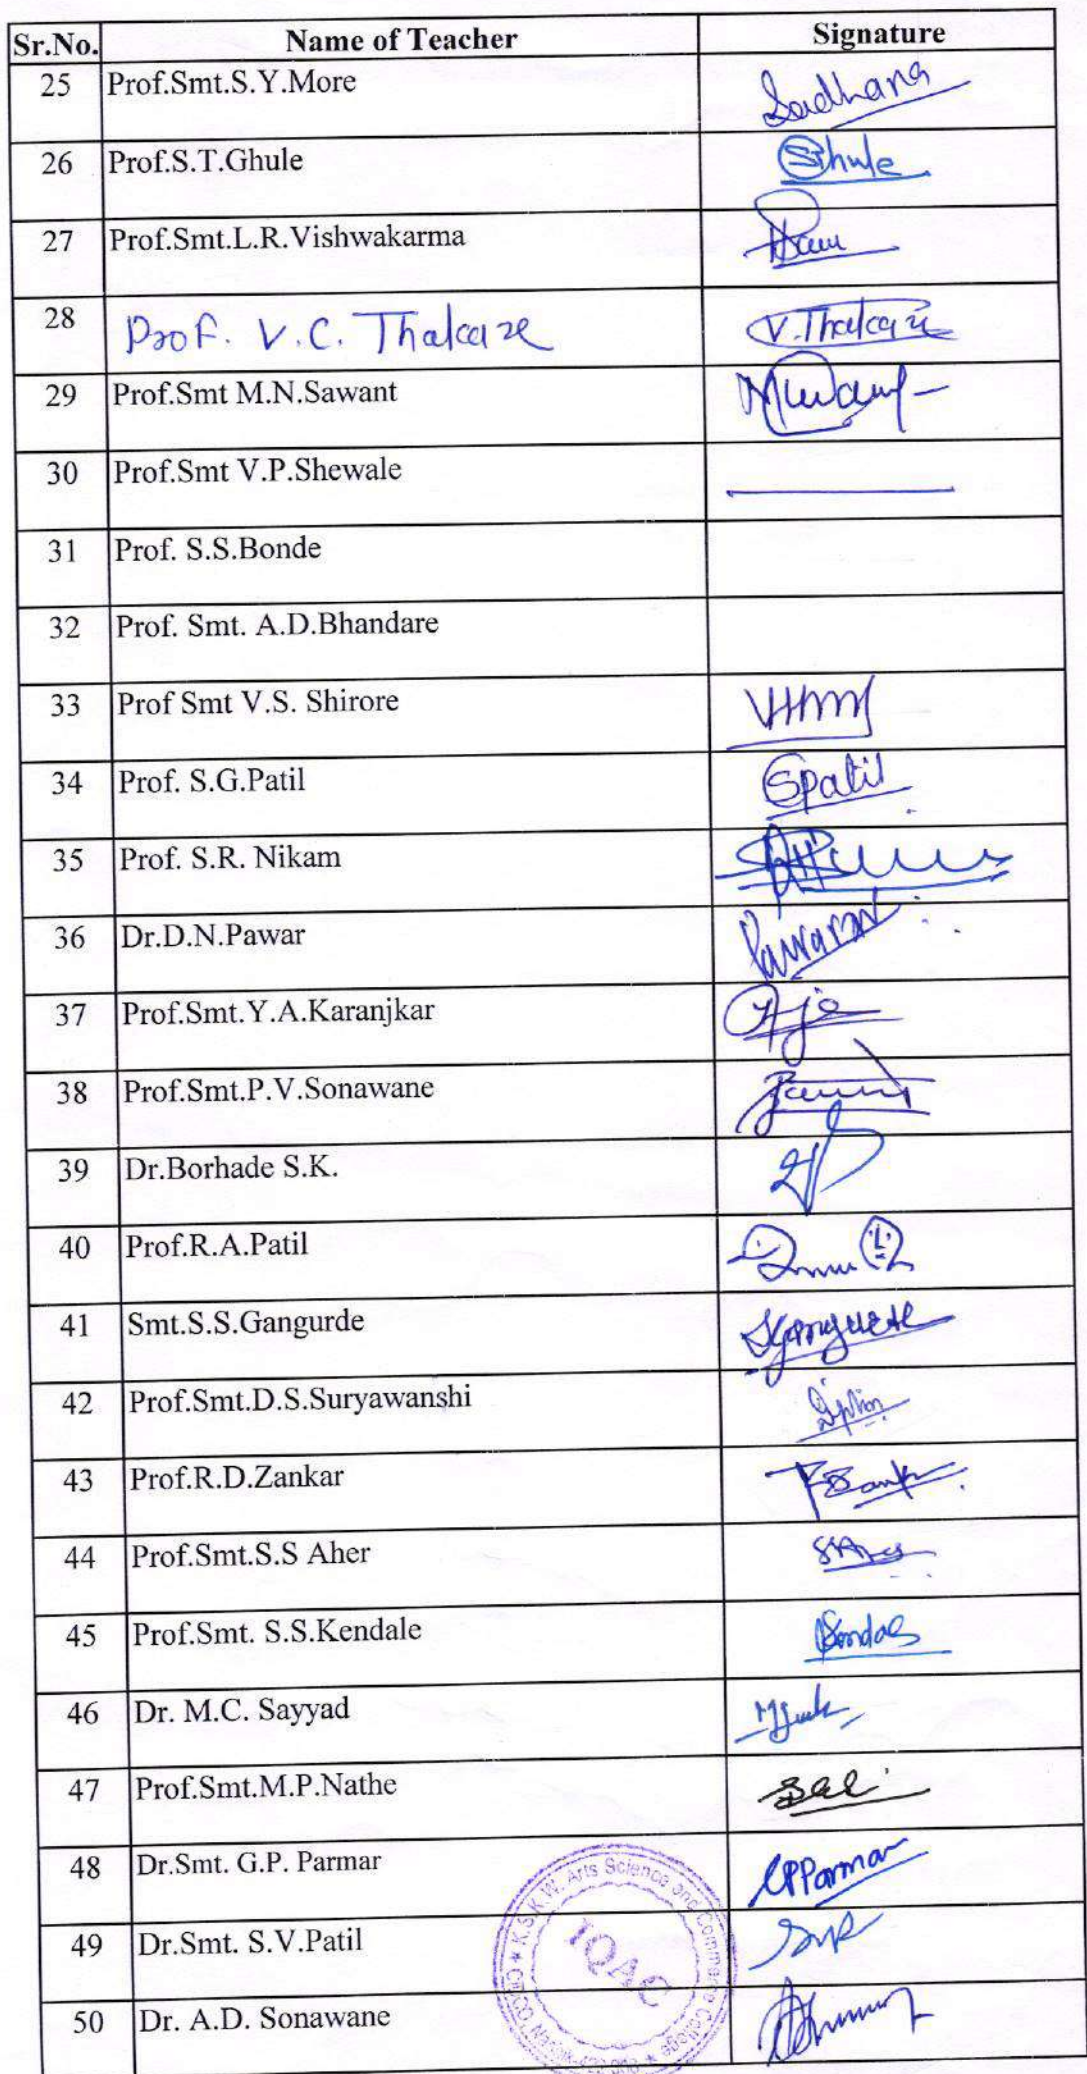 Sr.No. Name of Teacher Signature
25 Prof.Smt.S.Y.More Sadhana
26 Prof.S.T.Ghule Sthule
27 Prof.Smt.L.R.Vishwakarma
28 Prof. V.C. Thakare V.Thakare
29 Prof.Smt M.N.Sawant
30 Prof.Smt V.P.Shewale
31 Prof. S.S.Bonde
32 Prof. Smt. A.D.Bhandare
33 Prof Smt V.S. Shirore
34 Prof. S.G.Patil SPatil
35 Prof. S.R. Nikam
36 Dr.D.N.Pawar
37 Prof.Smt.Y.A.Karanjkar
38 Prof.Smt.P.V.Sonawane
39 Dr.Borhade S.K.
40 Prof.R.A.Patil
41 Smt.S.S.Gangurde
42 Prof.Smt.D.S.Suryawanshi
43 Prof.R.D.Zankar
44 Prof.Smt.S.S Aher
45 Prof.Smt. S.S.Kendale
46 Dr. M.C. Sayyad
47 Prof.Smt.M.P.Nathe
48 Dr.Smt. G.P. Parmar GPParmar
49 Dr.Smt. S.V.Patil
50 Dr. A.D. Sonawane
K.S.K.W. Arts Science and Commerce College
IQAC